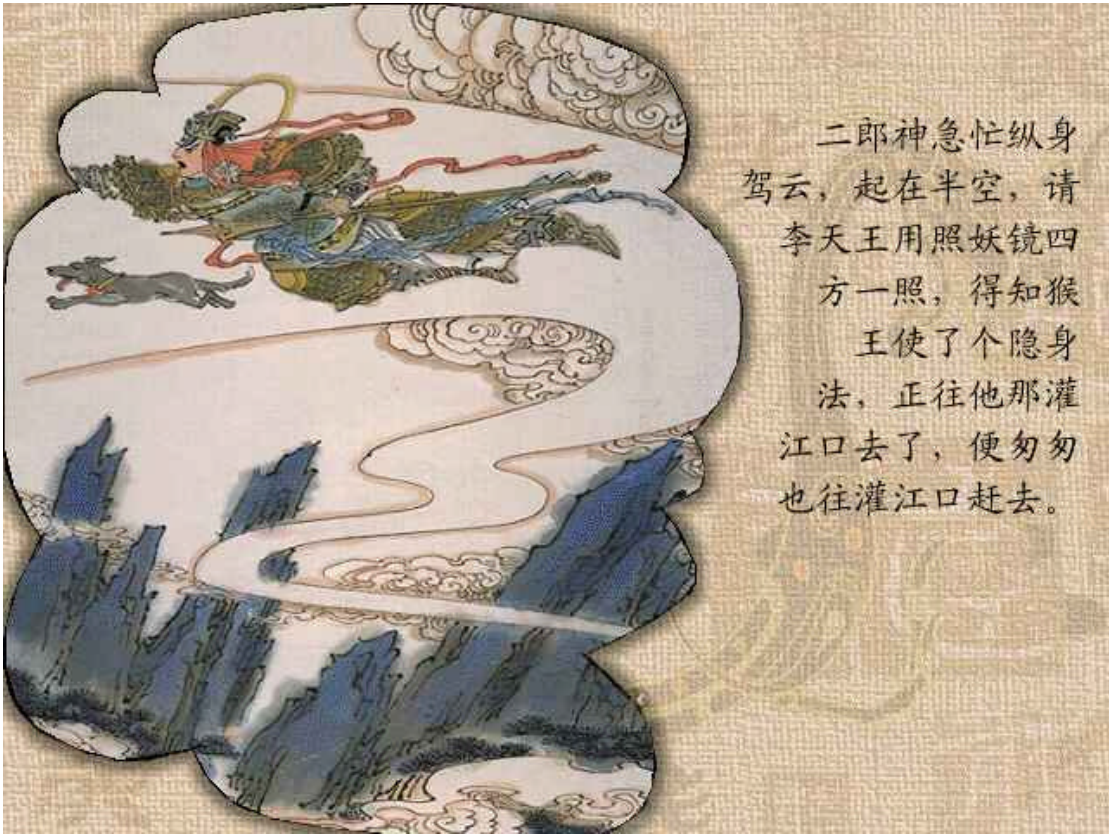 二郎神急忙纵身
驾云，起在半空，请
李天王用照妖镜四
方一照，得知猴
王使了个隐身
法，正往他那灌
江口去了，便匆匆
也往灌江口赶去。